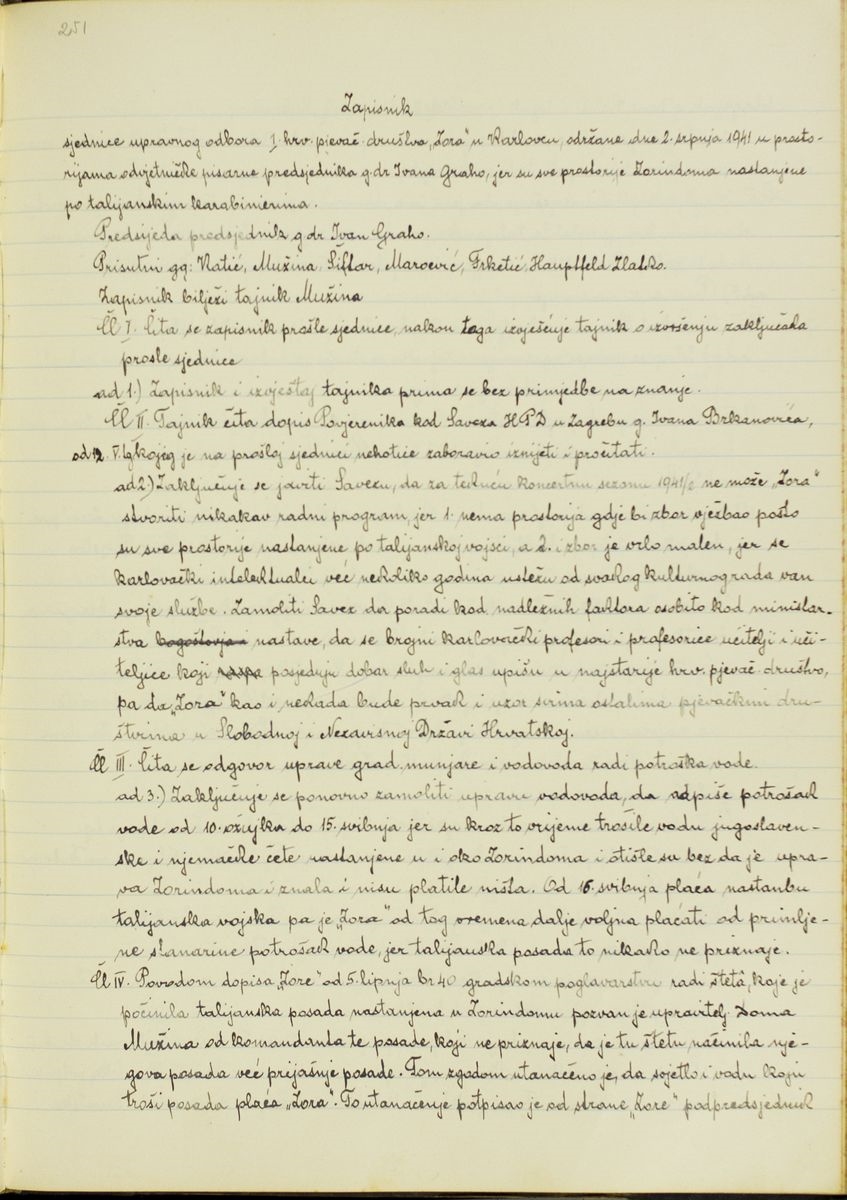 251
Zapisnik
sjednice upravnog odbora I. hrv. pjevač. društva „Zora“ u Karlovcu, održane dne 2. srpnja 1941 u prosto-
rijama odvjetničke pisarne predsjednika g. dr Ivana Graho, jer su sve prostorije Zorindoma nastanjene
po talijanskim karabinierima.
Predsijeda predsjednik g dr Ivan Graho.
Prisutni gg: Katić, Mužina Šiftar, Maroević, Frketić, Hauptfeld Zlatko.
Zapisnik bilježi tajnik Mužina
Čl I. Čita se zapisnik prošle sjednice, nakon toga izvješćuje tajnik o izvršenju zaključaka
prošle sjednice
ad 1.) Zapisnik i izvještaj tajnika prima se bez primjedbe na znanje.
Čl II. Tajnik čita dopis Povjerenika kod Saveza H P D u Zagrebu g. Ivana Brkanovića,
od 12. V. tg kojeg je na prošloj sjednici nehotice zaboravio iznijeti i pročitati.
ad 2) Zaključuje se javiti Savezu, da za tekuću koncertnu sezonu 1941/2 ne može „Zora“
stvoriti nikakav radni program, jer 1. nema prostorija gdje bi zbor vježbao pošto
su sve prostorije nastanjene po talijanskoj vojsci, a 2. i zbor je vrlo malen, jer se
karlovački intelektualci već nekoliko godina ustežu od svakog kulturnog rada van
svoje službe. Zamoliti Savez da poradi kod nadležnih faktora osobito kod ministar-
stva bogoštovja i nastave, da se brojni karlovački profesori i profesorice učitelji i uči-
teljice koji posjeduju dobar sluh i glas upišu u najstarije hrv. pjevač. društvo,
pa da „Zora“ kao i nekada bude prvak i uzor svima ostalima pjevačkim dru-
štvima u Slobodnoj i Nezavisnoj Državi Hrvatskoj.
Čl III. Čita se odgovor uprave grad. munjare i vodovoda radi potroška vode.
ad 3.) Zaključuje se ponovno zamoliti upravu vodovoda, da odpiše potrošak
vode od 10. ožujka do 15. svibnja jer su kroz to vrijeme trošile vodu jugoslaven-
ske i njemačke čete nastanjene u i oko Zorindoma i otišle su bez da je upra-
va Zorindoma i znala i nisu platile ništa. Od 16. svibnja plaća nastanbu
talijanska vojska pa je „Zora“ od tog vremena dalje voljna plaćati od primlje-
ne stanarine potrošak vode, jer talijanska posada to nikako ne priznaje.
Čl IV. Povodom dopisa „Zore“ od 5. lipnja br 40 gradskom poglavarstvu radi štetâ, koje je
počinila talijanska posada nastanjena u Zorindomu pozvan je upravitelj Doma
Mužina od komandanta te posade, koji ne priznaje, da je tu štetu načinila nje-
gova posada već prijašnje posade. Tom zgodom utanačeno je, da svjetlo i vodu koju
troši posada plaća „Zora“. To utanačenje potpisao je od strane „Zore“ podpredsjednik